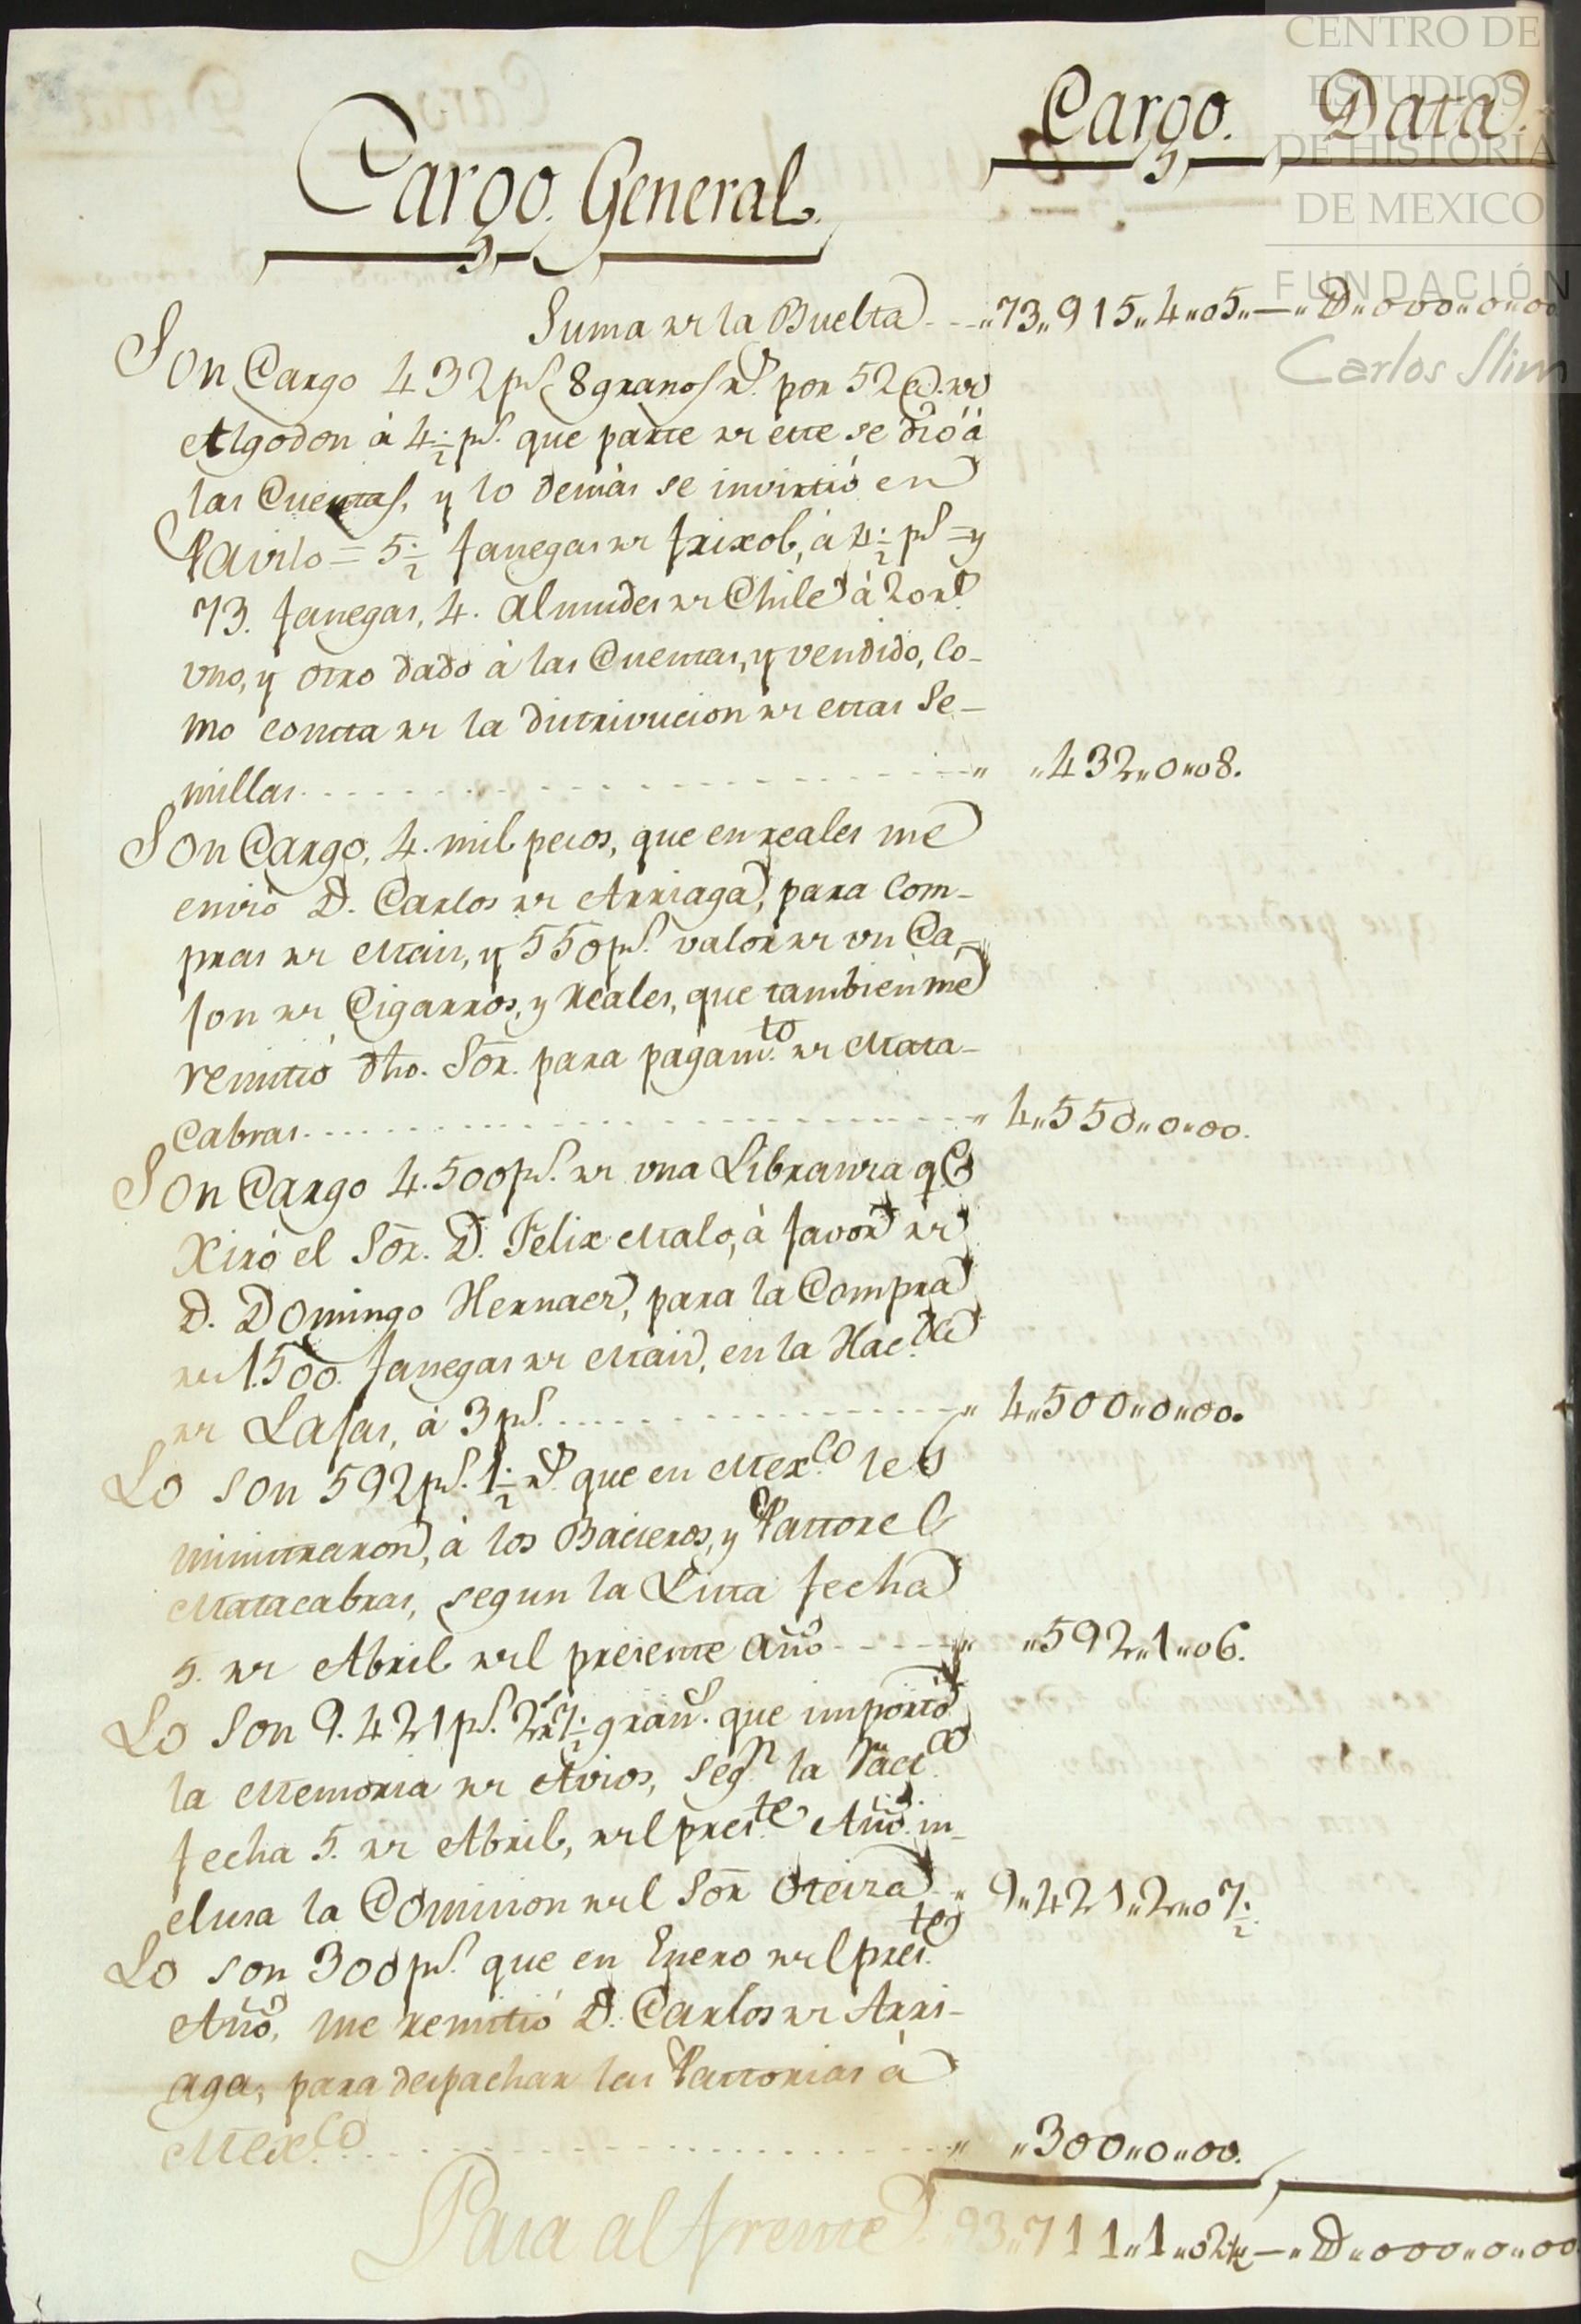 CENTRO DE
ESTUDIOS
DE HISTORIA
DE MEXICO
FUNDACIÓN
Carlos Slim
Cargo. Data.
Cargo General.
Suma de la Buelta - - - „73„915„4„05„—„D„000„0„00
Son Cargo 432 ps. 8 granos rs. por 52 @. de
Algodon à 4½ ps. que parte de este se dió à
las Cuentas, y lo demàs se invirtió en
Pavilo = 5½ fanegas de frixol, à 4½ ps = y
73. fanegas, 4. almudes de Chile à 20 rs.
uno, y otro dado à las Cuentas, y vendido, co-
mo consta de la distrivucion de estas Se-
millas - - - „ „432„0„08.
Son Cargo, 4. mil pesos, que en reales me
envió D. Carlos de Arriaga, para com-
pras de Mais, y 550 ps. valor de un Ca-
jon de Cigarros, y reales, que tambien me
remitió dho. Sor. para pagamto. de Mata-
cabras - - - „ 4„550„0„00.
Son Cargo 4.500 ps. de una Libranza qe
Xiró el Sor. D. Felix Malo, à favor de
D. Domingo Hernaes, para la Compra
de 1.500. fanegas de Mais, en la Hacda
de Lajas, à 3 ps. - - - „ 4„500„0„00.
Lo son 592 ps. 1½ rs. que en Mexco. se
ministraron, à los Bacieros, y Pastores
Matacabras, segun la Lista fecha
5. de Abril del presente año - - - „ „592„1„06.
Lo son 9.421 ps. 2 rs 7½ grans. que importó
la Memoria de Avios, segn. la
fecha 5. de Abril, del preste. Año. in-
clusa la Comision del Sor Oteiza - „ 9„421„2„07½.
Lo son 300 ps. que en Enero del preste.
Año, me remitió D. Carlos de Arri-
aga, para despachar las Pastorias à
Mexco. - - - „ „300„0„00.
Pasa al frente. 93„711„1„02½—„D„000„0„00